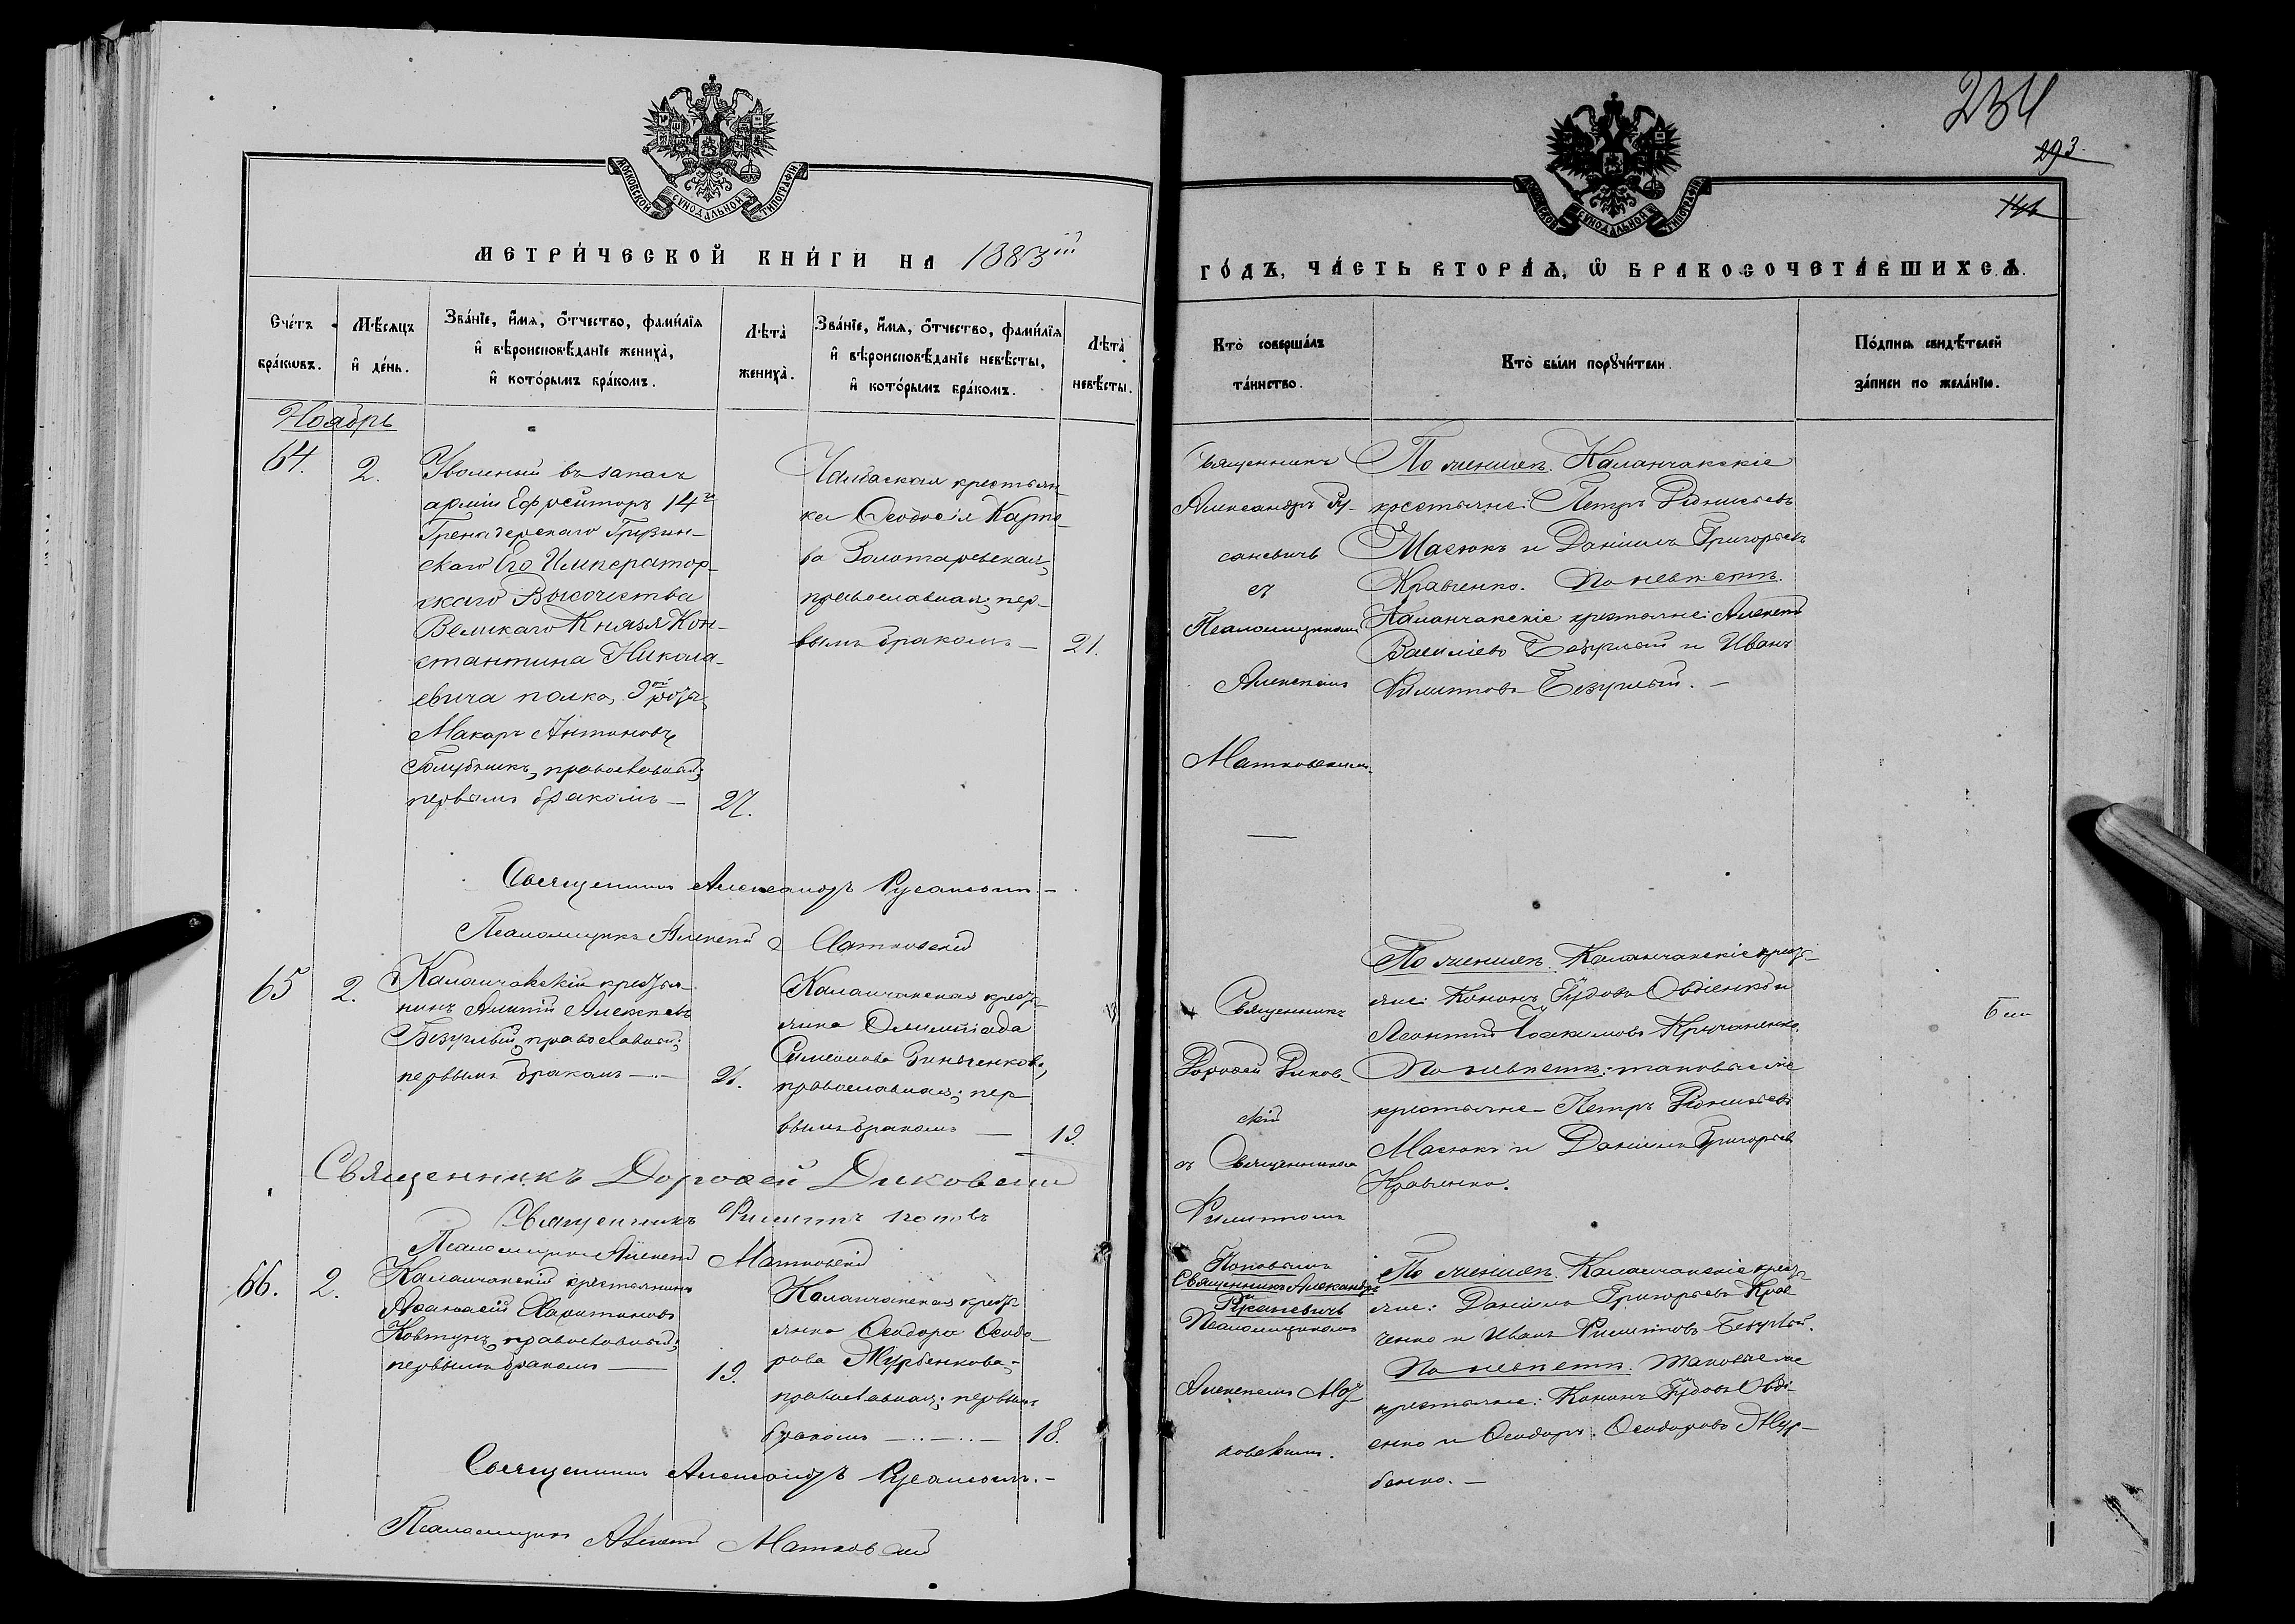 МОСКОВСКОЙ СѴНОДАЛЬНОЙ ТИПОГРАФІИ
МЕТРИ́ЧЕСКОЙ КНИ́ГИ НА 1883ій
Счéтъ бра́кѡвъ.
Мѣ́сяцъ и҆ де́нь.
Зва́нїе, и҆́мѧ, ѻ҆́тчество, фами́лїѧ
и҆ вѣроисповѣ́данїе жениха̀,
и҆ кото́рымъ бра́комъ.
Лѣта̀ жениха̀.
Зва́нїе, и҆́мѧ, ѻ҆́тчество, фами́лїѧ
и҆ вѣроисповѣ́данїе невѣ́сты,
и҆ кото́рымъ бра́комъ.
Лѣта̀ невѣ́сты.
Ноябрь
64.
2.
Уволеный въ запасъ
арміи Ефрейторъ 14го
Гренадерскаго Грузин-
скаго Его Император-
скаго Высочества
Великаго Князя Кон-
стантина Никола-
евича полка, 9ой роты
Макаръ Антоновъ
Голубникъ, православный;
первымъ бракомъ —
27.
крестьян-
ка Ѳеодосія Карпо-
ва Золотаревская,
православная; пер-
вымъ бракомъ —
21.
Священникъ Александръ Русаневичъ. —
Псаломщикъ Алексей Матковскій
65
2.
Каланчакскій крестья-
нинъ Алексѣевъ
Безуглый, православный;
первымъ бракомъ —
21.
Каланчакская крест-
янка Олимпіада
Симеонова Зинченкова,
православная; пер-
вымъ бракомъ —
19.
Священникъ Дороѳей Диковскій
Священникъ Филиппъ Поповъ
Псаломщикъ Алексей Матковскій
66.
2.
Каланчакскій крестьянинъ
Аѳанасій Харитоновъ
Ковтунъ, православный;
первымъ бракомъ —
19.
Каланчакская крест-
янка Ѳеодора Ѳеодо-
рова Журбенкова,-
православная; первымъ
бракомъ —
18.
Священникъ Александръ Русаневичъ. —
Псаломщикъ Алексей Матковскій
234
293.
МОСКОВСКОЙ СѴНОДАЛЬНОЙ ТИПОГРАФІИ
ГО́ДЪ, ЧА́СТЬ ВТОРА́Ѧ, Ѡ҆ БРАКОСОЧЕТА́ВШИХСѦ.
Кто̀ соверша́лъ
та́инство.
Кто̀ бы́ли порꙋчи́тели.
По́дпись свидѣ́телей
за́писи по жела́нїю.
Священникъ
Александръ Ру-
саневичъ
съ
Псаломщикомъ
Алексеемъ
Матковскимъ.
По женихѣ. Каланчакскіе
крестьяне: Петръ Діонисіевъ
Масюкъ и Даніилъ Григорьевъ
Кравченко. По невѣстѣ.
Каланчакскіе крестьяне: Алексей
Василіевъ Безуглый и Иванъ
Филипповъ Безуглый. —
Священникъ
Дороѳей Диков-
скій
съ Священникомъ
Филиппомъ
Поповымъ
По женихѣ. Каланчакскіе крест-
яне: Кононъ Іудовъ Овдіенко и
Леонтій Іоакимовъ
По невѣстѣ: таковые же
крестьяне — Петръ Діонисіевъ
Масюкъ и Даніилъ Григорьевъ
Кравченко.
Священникъ Александръ
Русаневичъ
Псаломщикомъ
Алексеемъ Мат-
ковскимъ.
По женихѣ. Каланчакскіе крест-
яне: Даніилъ Григорьевъ Крав-
ченко и Иванъ Филипповъ Безуглый.
По невѣстѣ. таковые же
крестьяне: Кононъ Іудовъ Овді-
енко и Ѳеодоръ Ѳеодоровъ Жур-
бенко. —